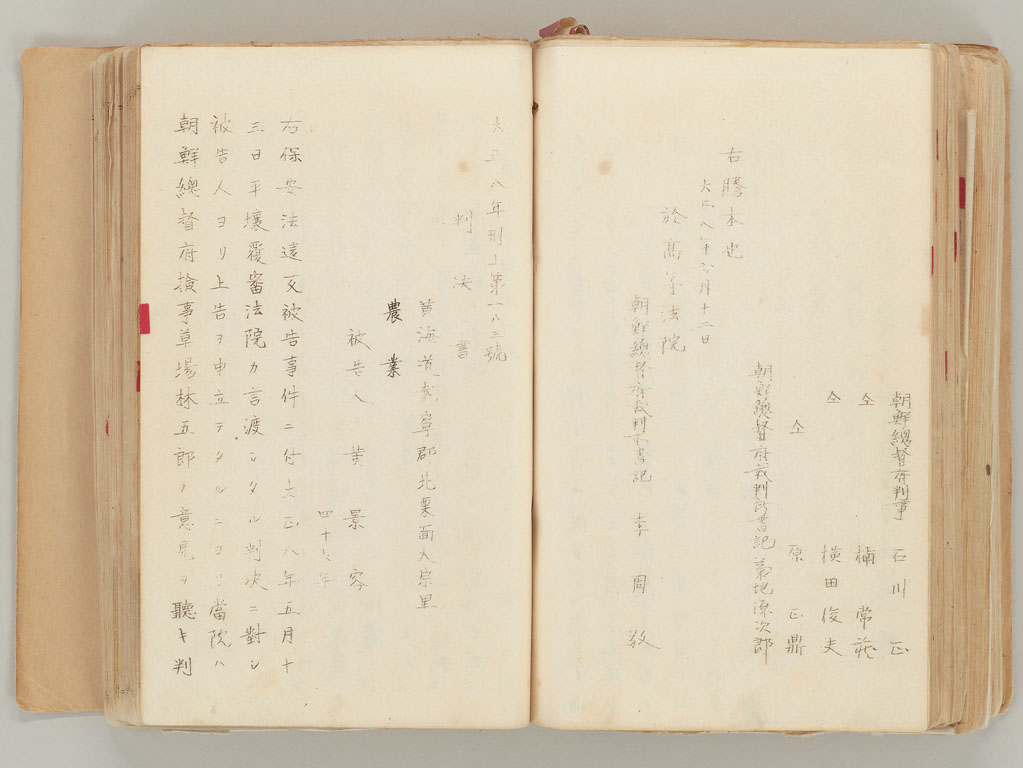 朝鮮總督府判事 石川正
仝 楠常藏
仝 橫田俊夫
仝 原正鼎
朝鮮總督府裁判所書記 菊地源次郎
右謄本也
大正八年六月十二日
於高等法院
朝鮮總督府裁判所書記 李周敬
大正八年刑上第一八三號
判決書
黃海道載寧郡北栗面大宗里
農業
被告人 黃景容
四十六年
右保安法違反被告事件ニ付大正八年五月十
三日平壤覆審法院カ言渡シタル判決ニ對シ
被告人ヨリ上告ヲ申立テタルニヨリ當院ハ
朝鮮總督府檢事草場林五郎ノ意見ヲ聽キ判